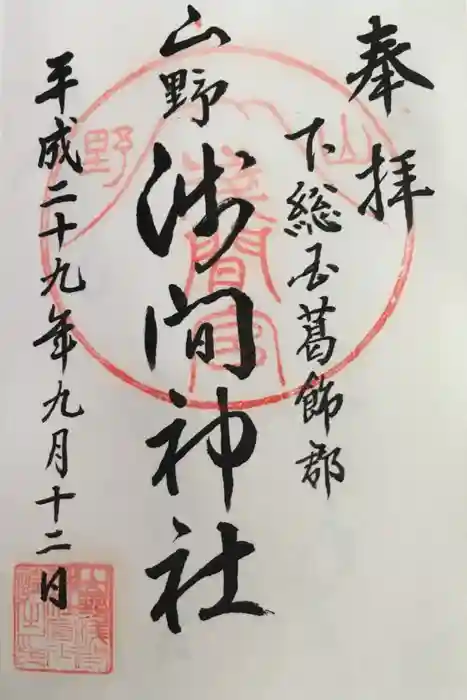 奉拝
下総国葛飾郡
山野
浅間神社
平成二十九年九月十二日
山
野
浅間宮